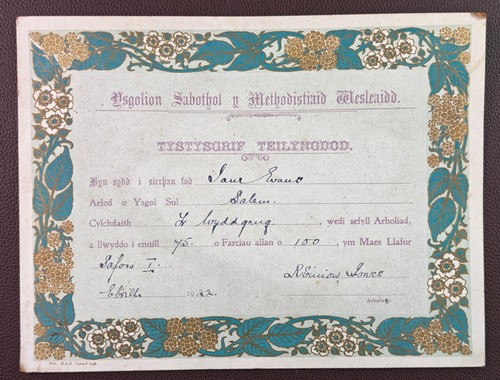 Ysgolion Sabothol y Methodistiaid Wesleaidd.
TYSTYSGRIF TEILYNGDOD.
Hyn sydd i sicrhau fod Jane Evans
Aelod o Ysgol Sul Salem.
Cylchdaith Yr Wyddgrug, wedi sefyll Arholiad,
a llwyddo i ennill 75 o Farciau allan o 100, ym Maes Llafur
Safon I.
Jones
Ebrill 1922
Arholwr.